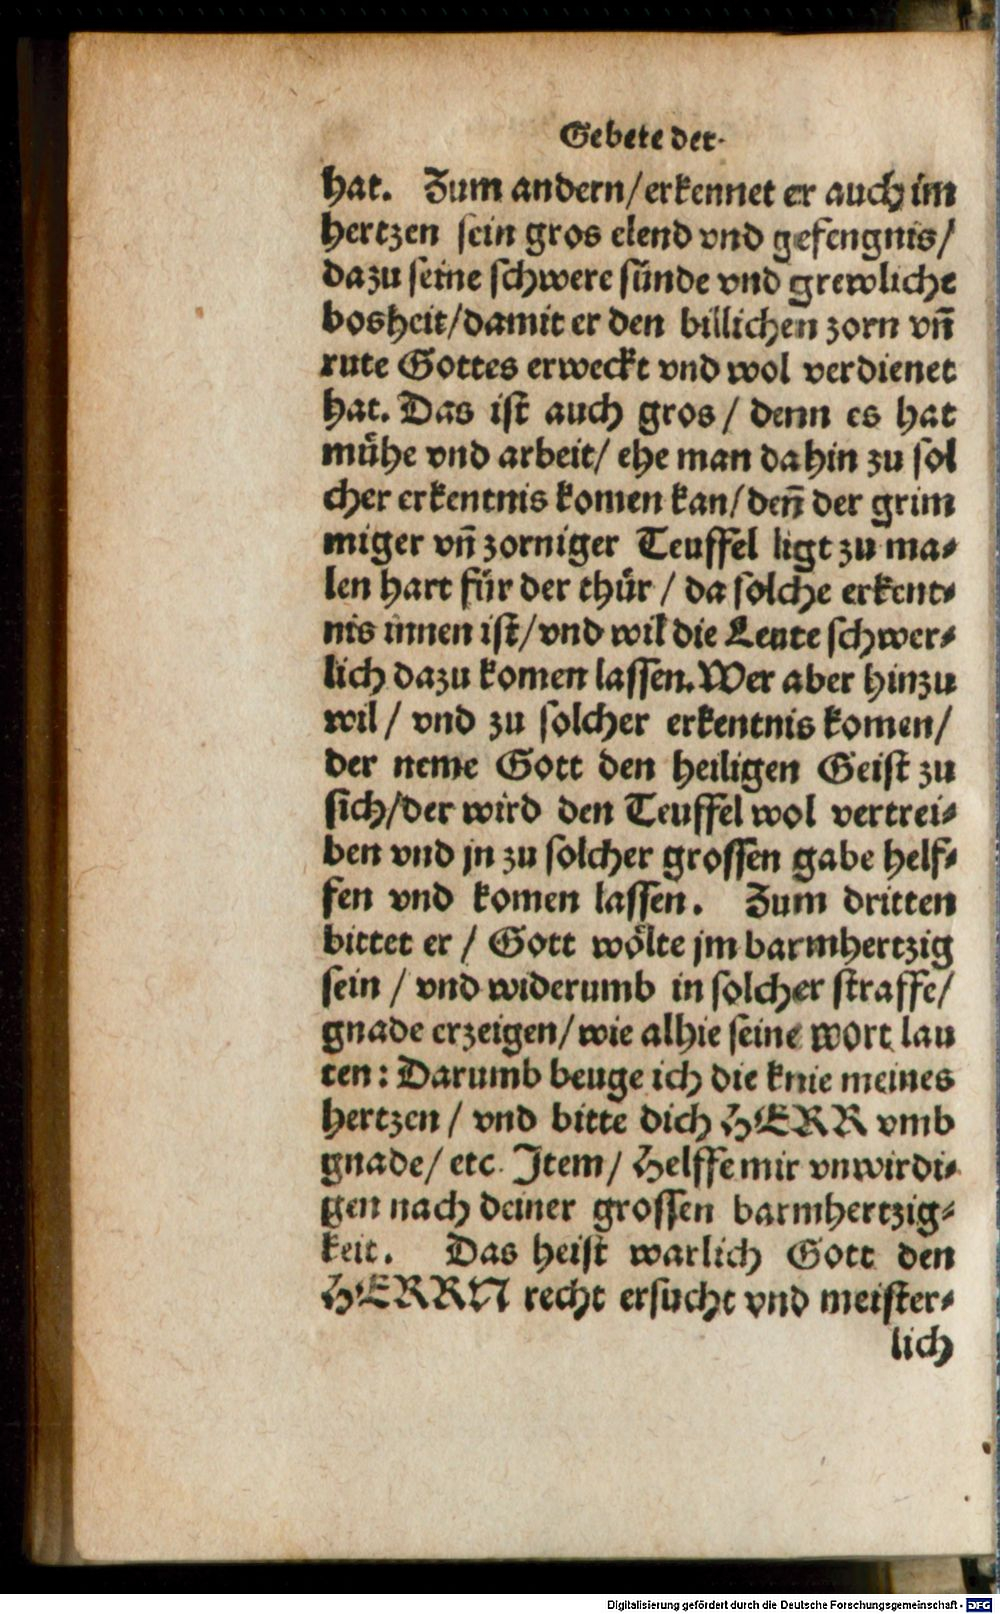 Gebete der
hat. Zum andern/ erkennet er auch im
hertzen sein gros elend vnd gefengnis/
dazu seine schwere sünde vnd grewliche
bosheit/ damit er den billichen zorn vn̄
rute Gottes erweckt vnd wol verdienet
hat. Das ist auch gros/ denn es hat
mühe vnd arbeit/ ehe man dahin zu sol
cher erkentnis komen kan/ den̄ der grim
miger vn̄ zorniger Teuffel ligt zu ma-
len hart für der thür/ da solche erkent-
nis innen ist/ vnd wil die Leute schwer-
lich dazu komen lassen. Wer aber hinzu
wil/ vnd zu solcher erkentnis komen/
der neme Gott den heiligen Geist zu
sich/ der wird den Teuffel wol vertrei-
ben vnd jn zu solcher grossen gabe helf-
fen vnd komen lassen. Zum dritten
bittet er/ Gott wölte jm barmhertzig
sein/ vnd widerumb in solcher straffe/
gnade erzeigen/ wie alhie seine wort lau
ten: Darumb beuge ich die knie meines
hertzen/ vnd bitte dich HERR vmb
gnade/ etc. Item/ Helffe mir vnwirdi-
gen nach deiner grossen barmhertzig-
keit. Das heist warlich Gott den
HERRN recht ersucht vnd meister-
lich
Digitalisierung gefördert durch die Deutsche Forschungsgemeinschaft - DFG